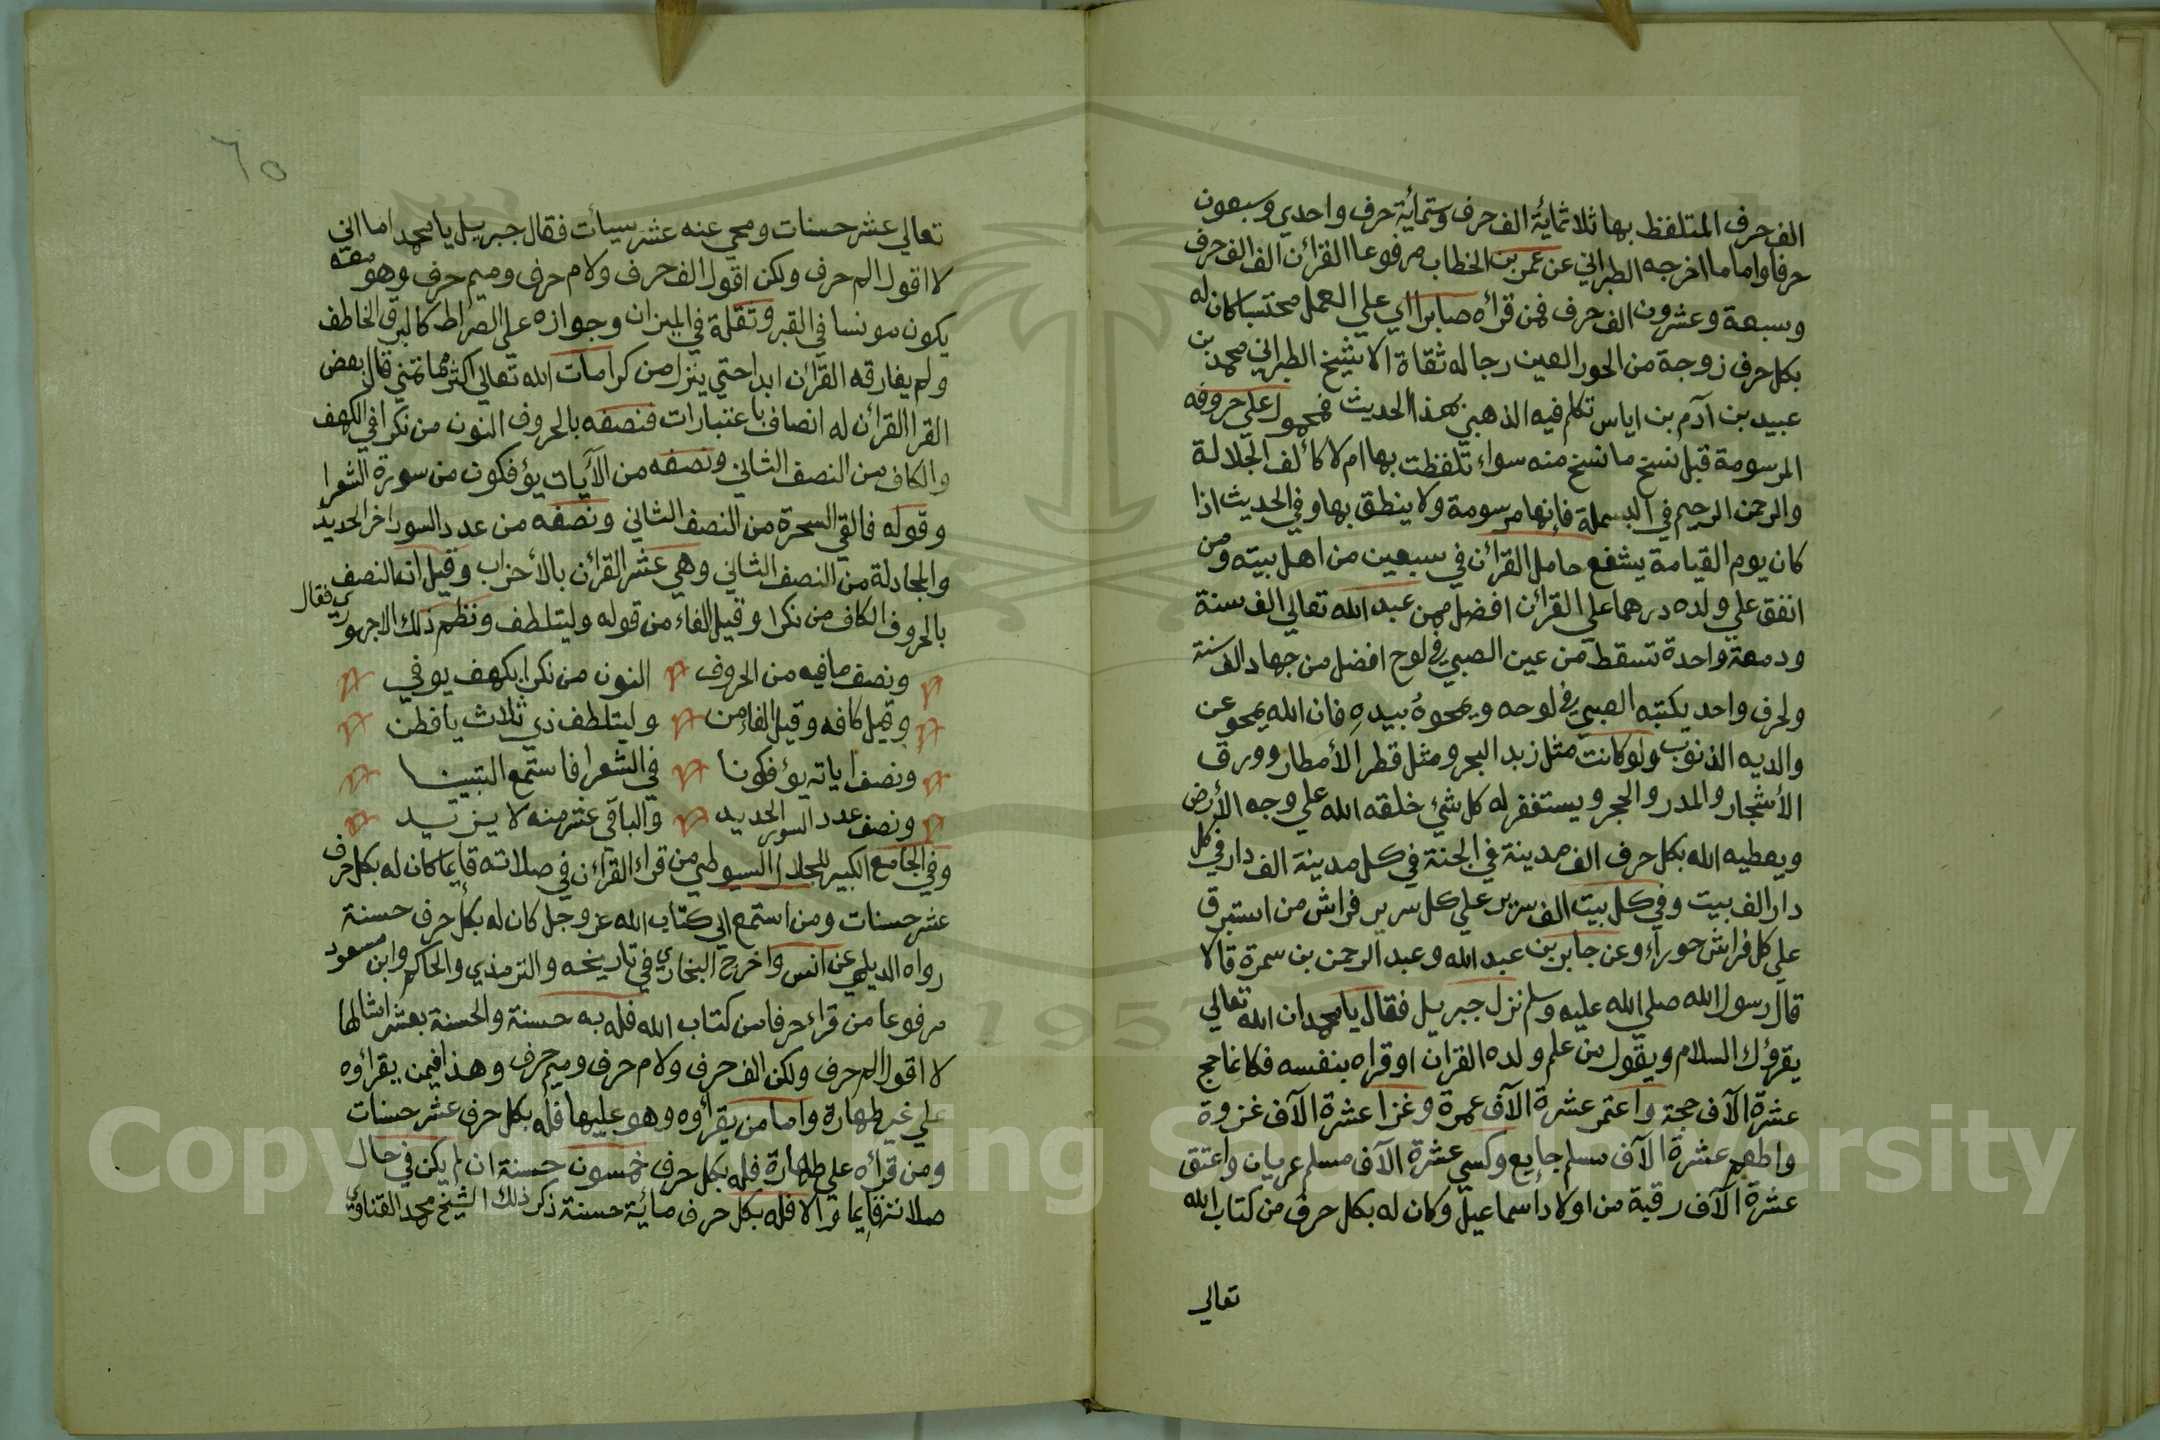 الف حرف المتلفظ بها ثلاثمائة الف حرف وستمائة حرف واحدي وسبعون
حرفا واما ما اخرجه الطبراني عن عمر بن الخطاب مرفوعا القرائن الف الف حرف
وسبعة وعشرون الف حرف فمن قرأه صابرا اي علي العمل محتسبا كان له
بكل حرف زوجة من الحور العين رجاله ثقاة الا شيخ الطبراني محمد بن
عبيد بن آدم بن اياس تكلم فيه الذهبي بهذا الحديث فمحمول علي حروفه
المرسومة قبل نسخ ما نسخ منه سواء تلفظت بها ام لا كألف الجلالة
والرحمن الرحيم في البسملة فإنها مرسومة ولا ينطق بها وفي الحديث اذا
كان يوم القيامة يشفع حامل القرائن في سبعين من اهل بيته ومن
انفق علي ولده درهما علي القرائن افضل ممن عبد الله تعالي الف سنة
ودمعة واحدة تسقط من عين الصبي في لوح افضل من جهاد الف سنة
ولحرف واحد يكتبه الصبي في لوحه ويمحوه بيده فان الله يمحو عن
والديه الذنوب ولو كانت مثل زبد البحر ومثل قطر الأمطار وورق
الأشجار والمدر والحجر ويستغفر له كل شئ خلقه الله علي وجه الأرض
ويعطيه الله بكل حرف الف مدينة في الجنة في كل مدينة الف دار في كل
دار الف بيت وفي كل بيت الف سرير علي كل سرير فراش من استبرق
علي كل فراش حوراء وعن جابر بن عبد الله وعبد الرحمن بن سمرة قالا
قال رسول الله صلي الله عليه وسلم نزل جبريل فقال يا محمد ان الله تعالي
يقرؤك السلام ويقول من علم ولده القران او قراه بنفسه فكانما حج
عشرة الآف حجة واعتمر عشرة الآف عمرة وغزا عشرة الآف غزوة
واطعم عشرة الآف مسلم جايع وكسي عشرة الآف مسلم عريان واعتق
عشرة الآف رقبة من اولاد اسماعيل وكان له بكل حرف من كتاب الله
تعالي
٦٥
تعالي عشر حسنات ومحي عنه عشر سيأت فقال جبريل يا محمد اما اني
لا اقول الم حرف ولكن اقول الف حرف ولام حرف وميم حرف وهو معه
يكون مونسا في القبر وثقلة في الميزان وجوازه علي الصراط كالبرق الخاطف
ولم يفارقه القرائن ابدا حتي ينزل من كرامات الله تعالي اكثر مما تمني قال بعض
القرا القرائن له انصاف باعتبارات فنصفه بالحروف النون من نكرا في الكهف
والكاف من النصف الثاني ونصفه من الآيات يؤفكون من سورة الشعرا
وقوله فالقي السحرة من النصف الثاني ونصفه من عدد السور اخر الحديد
والمجادلة من النصف الثاني وهي عشر القرائن بالأحزاب وقيل انه النصف
بالحروف الكاف من نكرا وقيل الفاء من قوله وليتلطف ونظم ذلك الاجهوري فقال
ونصف ما فيه من الحروف النون من نكرا بكهف يوفي
وقيل كافه وقيل الفاء من وليتلطف ذي ثلاث يا فطن
ونصف اياته يؤفكونا في الشعرا فاستمع التبيينا
ونصف عدد السور الحديد والباقي عشر منه لا يزيد
وفي الجامع الكبير للجلال السيوطي من قراء القرائن في صلاته قايما كان له بكل حرف
عشر حسنات ومن استمع الي كتاب الله عز وجل كان له بكل حرف حسنة
رواه الديلمي عن انس واخرج البخاري في تاريخه والترمذي والحاكم وابن مسعود
مرفوعا من قراء حرفا من كتاب الله فله به حسنة والحسنة بعشر امثالها
لا اقول الم حرف ولكن الف حرف ولام حرف وميم حرف وهذا فيمن يقراؤه
علي غير طهارة واما من يقرأوه وهو عليها فله بكل حرف عشر حسنات
ومن قرأه علي طهارة فله بكل حرف خمسون حسنة ان لم يكن في حال
صلاته قايما والا فله بكل حرف مائية حسنة ذكر ذلك الشيخ محمد القناوي
1957
Copyright © King Saud University